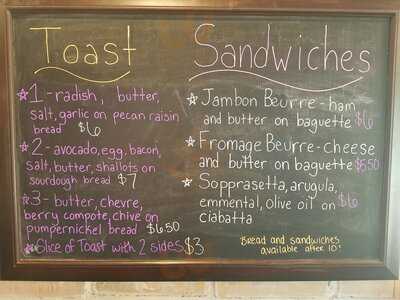 Toast
1 - radish, butter,
salt, garlic on pecan raisin
bread $6
2 - avocado, egg, bacon,
salt, butter, shallots on
sourdough bread $7
3 - butter, chevre,
berry compote, chive on
pumpernickel bread $6.50
Slice of Toast with 2 sides $3
Sandwiches
Jambon Beurre - ham
and butter on baguette $6
Fromage Beurre - cheese
and butter on baguette $5.50
Soprasetta, arugula,
emmental, olive oil on $6
ciabatta
Bread and sandwiches
available after 10!